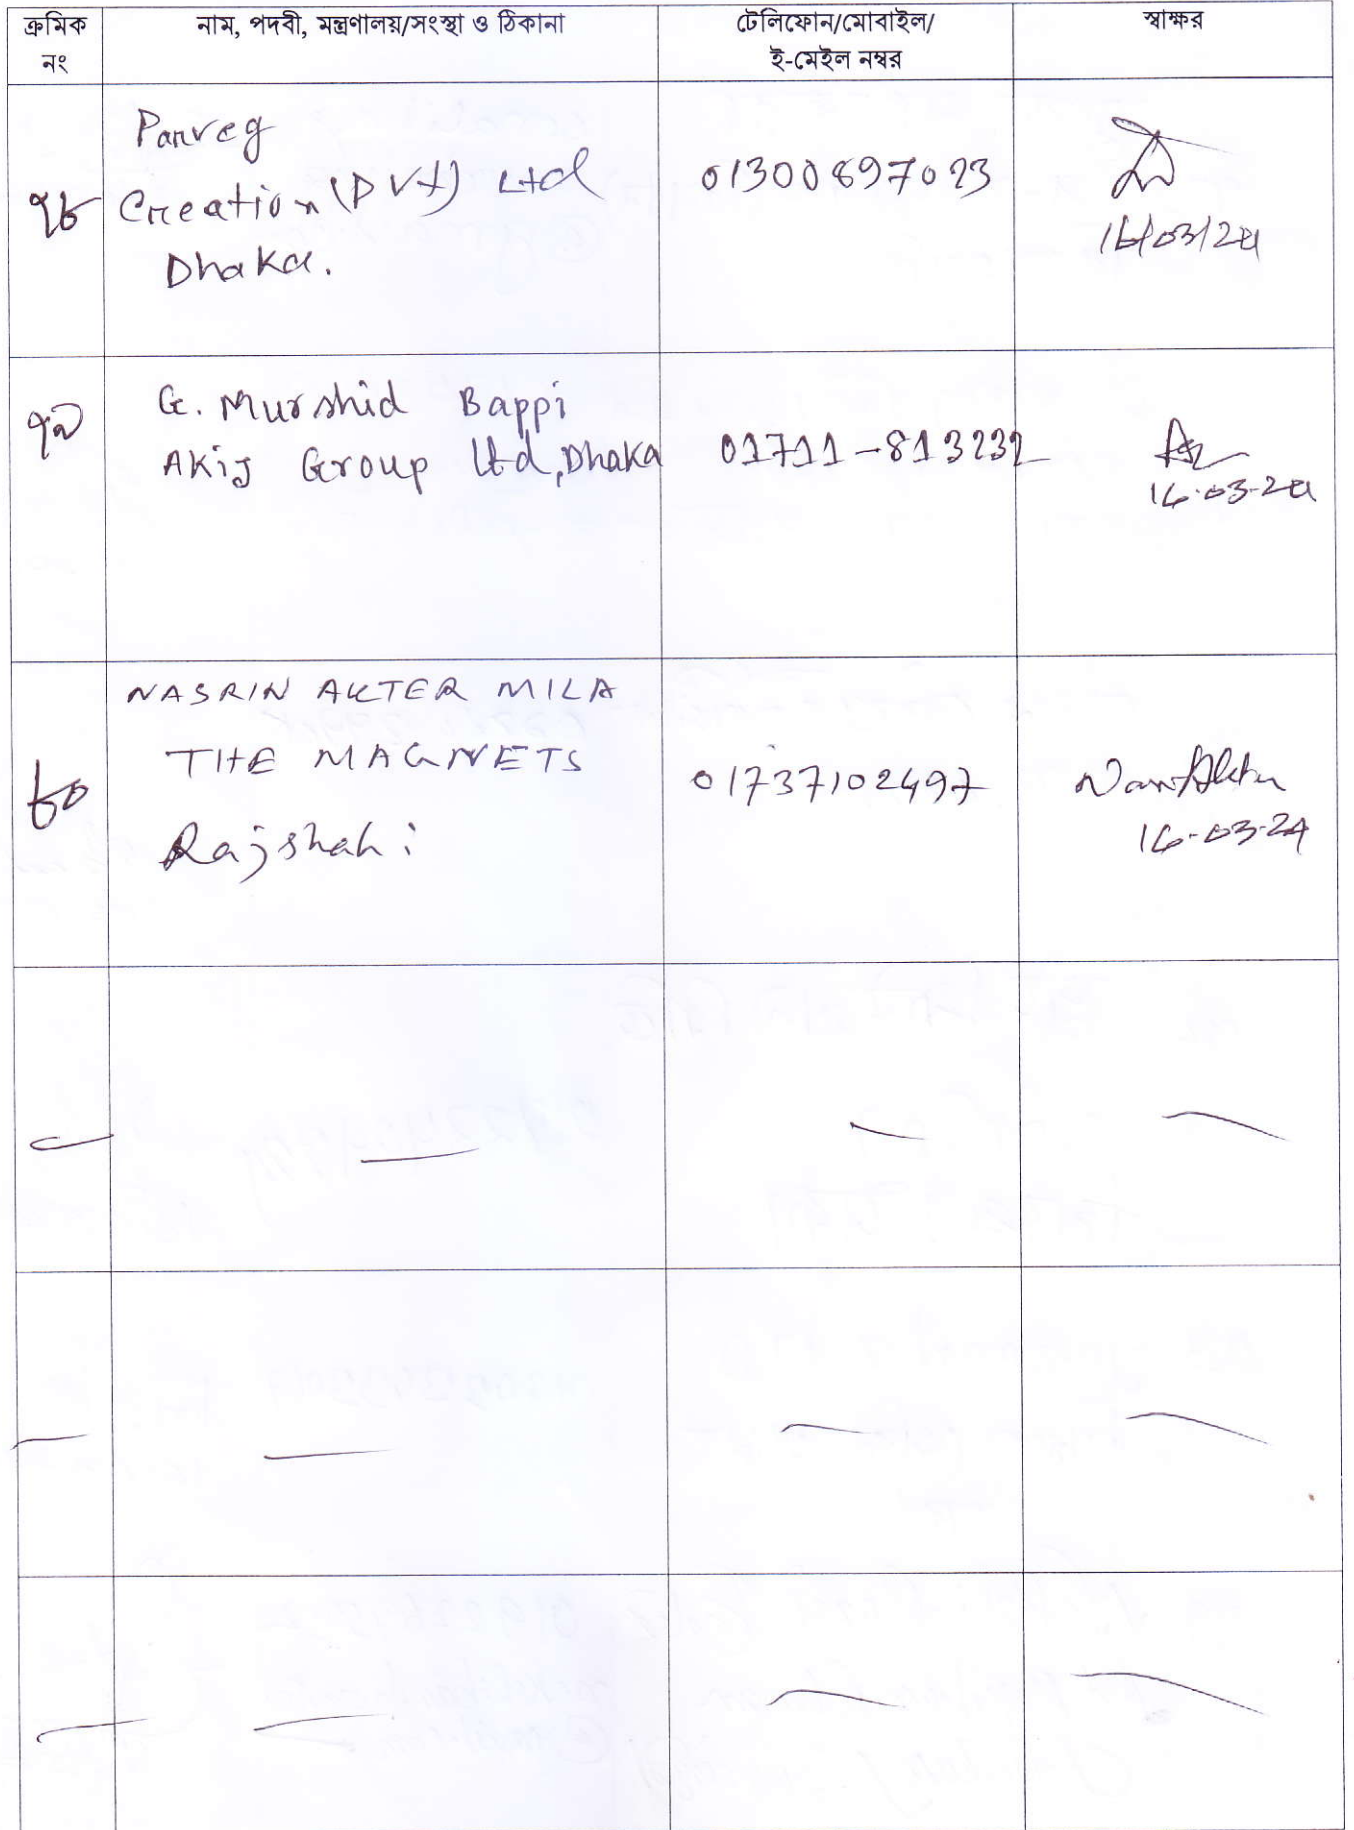 ক্রমিক নং
নাম, পদবী, মন্ত্রণালয়/সংস্থা ও ঠিকানা
টেলিফোন/মোবাইল/
ই-মেইল নম্বর
স্বাক্ষর
৭৮
Parveg
Creation (Pvt) Ltd
Dhaka.
01300897023
16/03/24
৭৯
G. Murshid Bappi
Akij Group Ltd, Dhaka
01711-813232
16-03-24
৮০
NASRIN AKTER MILA
THE MAGNETS
Rajshahi
01737102497
16-03-24